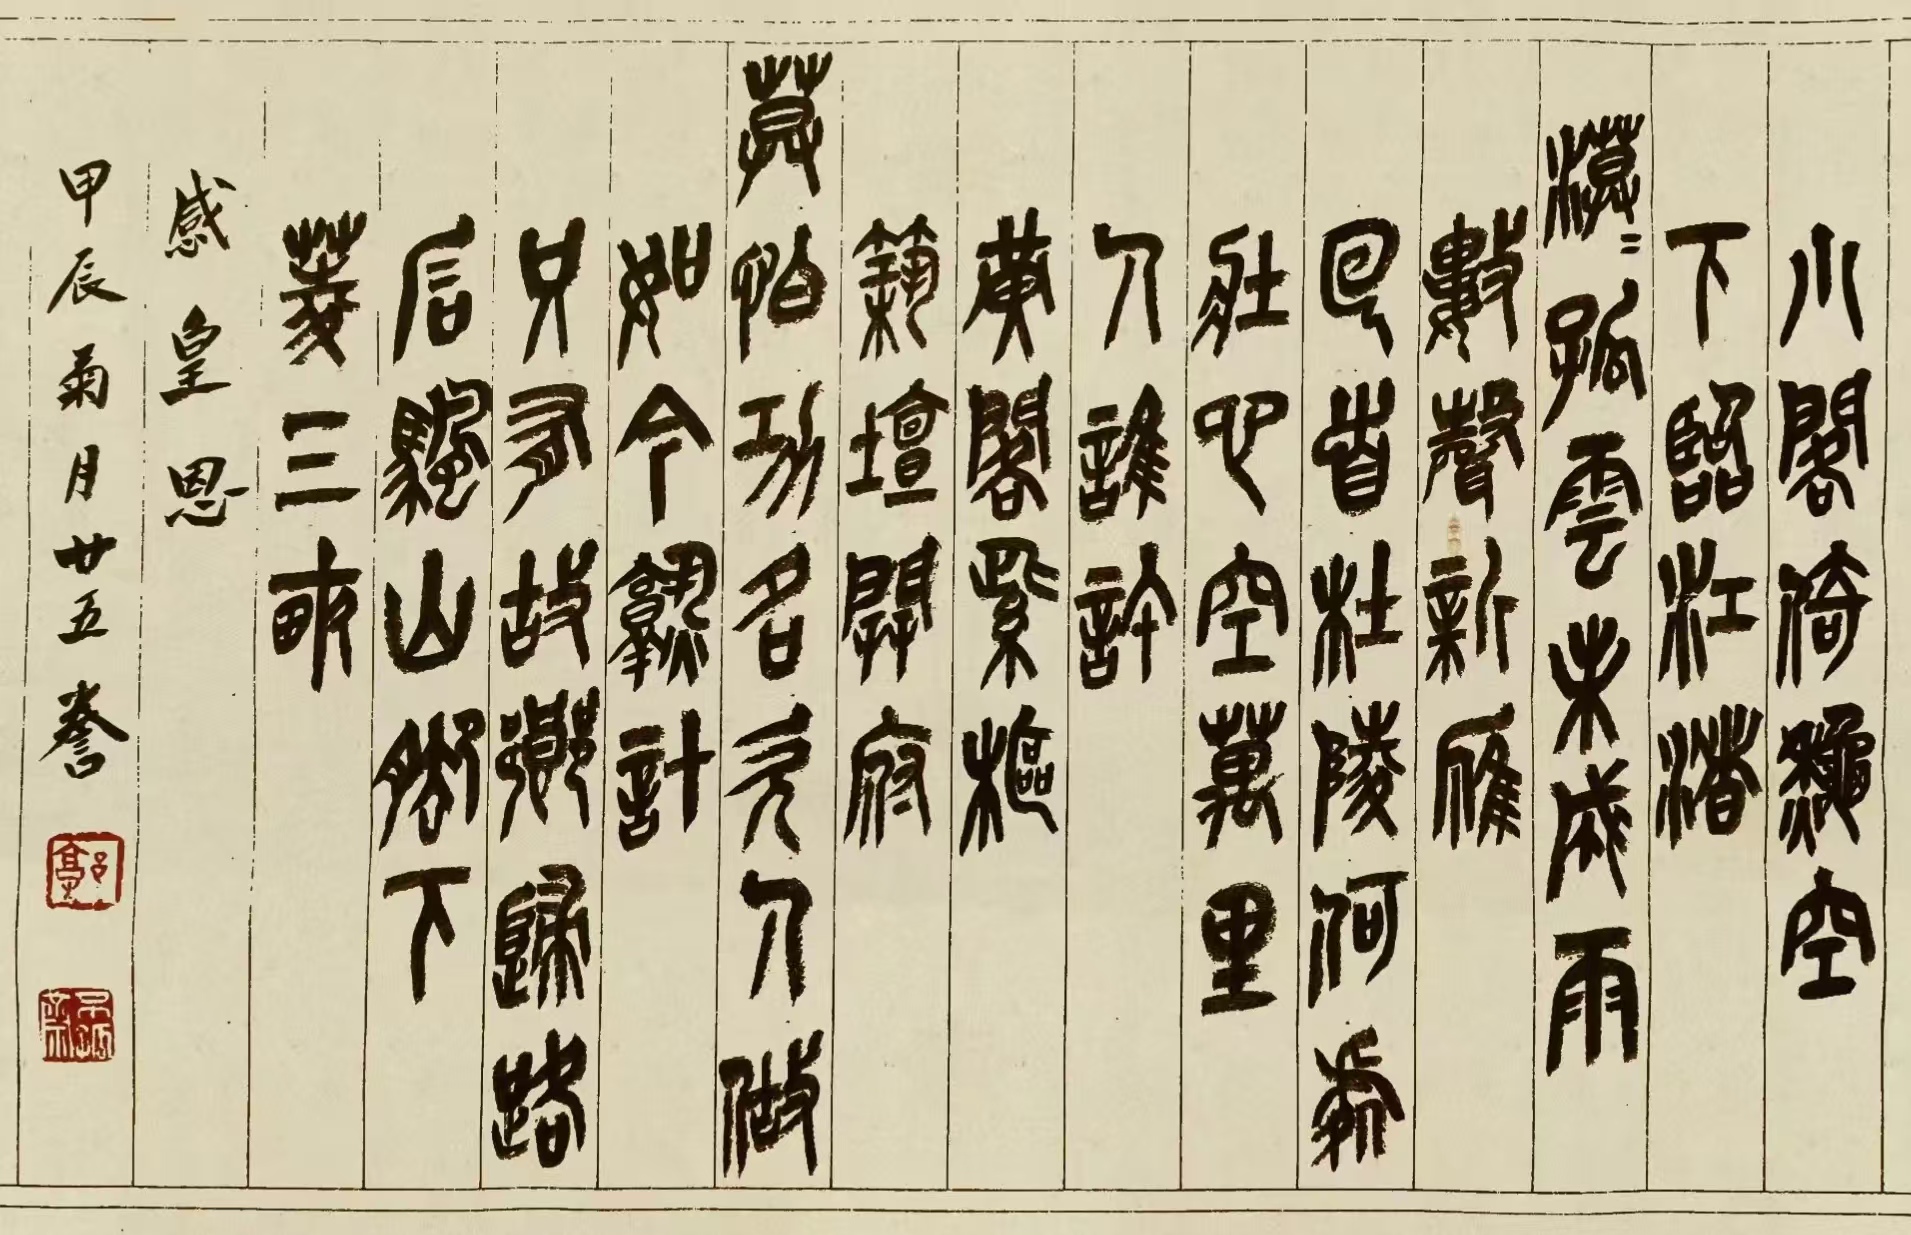 小閣倚秋空
下臨江渚
漠漠孤雲未成雨
數聲新雁
回首杜陵何處
壯心空萬里
人誰許
黃閣紫樞
築壇開府
莫怕功名欠人做
如今熟計
只有故鄉歸路
石颿山腳下
菱三畝
感皇恩
甲辰菊月廿五誊